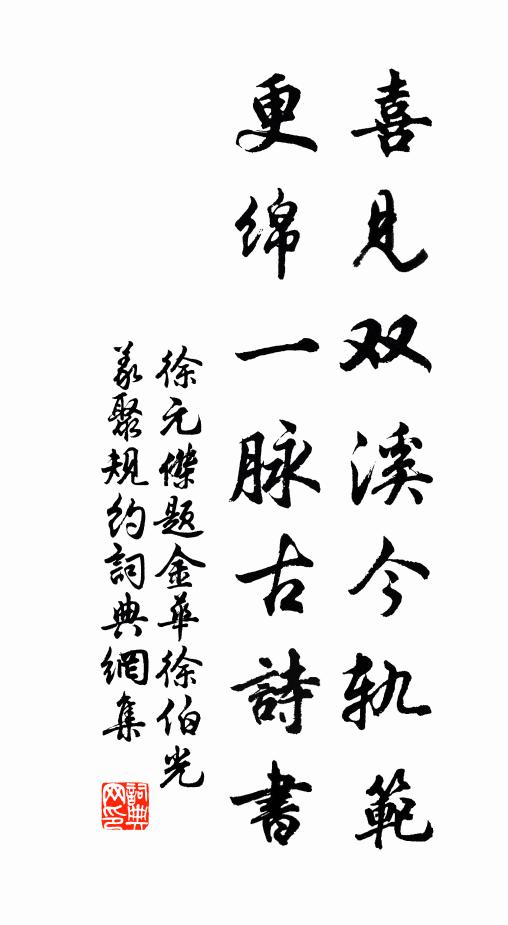 喜见双溪今轨範
更绵一脉古詩書
徐元傑题金華徐伯光
义聚規约詞典網集
詞典网印